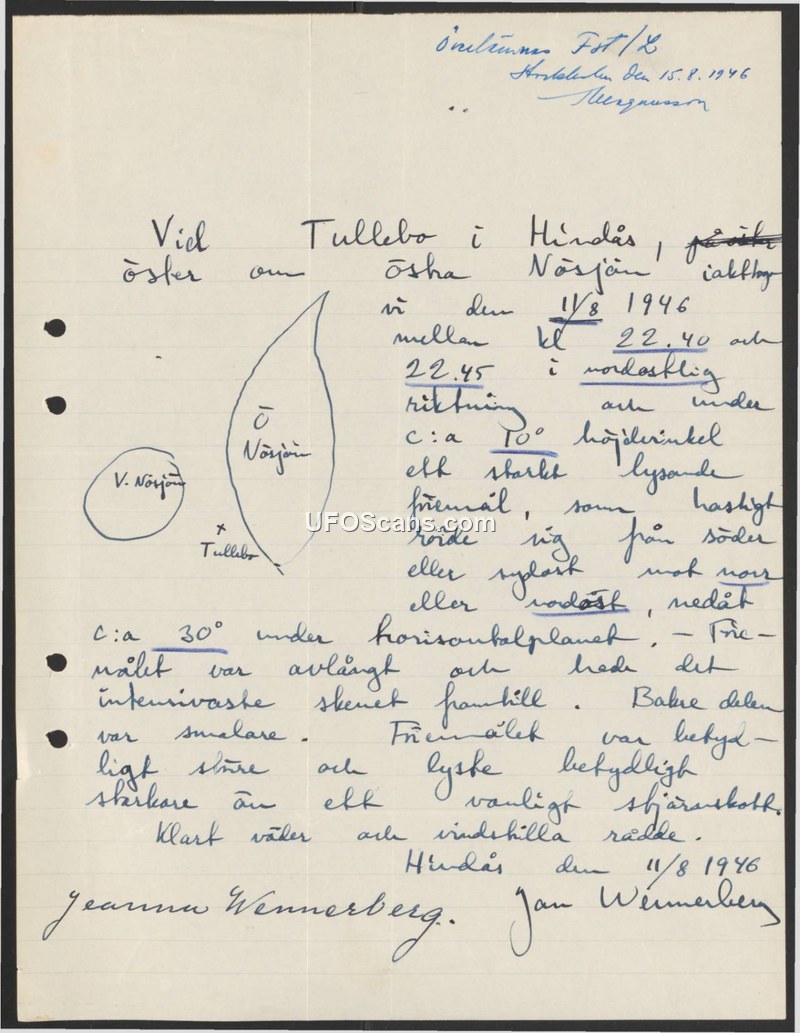 Överlämnas Fst/L
Stockholm den 15.8.1946
Magnusson
Vid Tullebo i Hindås, på östra
öster om östra Nösjön iakttogo
vi den 11/8 1946
mellan kl 22.40 och
22.45 i nordostlig
riktning och under
c:a 10° höjdvinkel
ett starkt lysande
föremål, som hastigt
rörde sig från söder
eller sydost mot norr
eller nordost, nedåt
c:a 30° under horisontalplanet. – Före-
målet var avlångt och hade det
intensivaste skenet framtill. Bakre delen
var smalare. Föremålet var betyd-
ligt större och lyste betydligt
starkare än ett vanligt stjärnskott.
Klart väder och vindstilla rådde.
Hindås den 11/8 1946
Jeanna Wennerberg. Jan Wennerberg
Ö
Nösjön
V. Nösjön
x
Tullebo
UFOScans.com